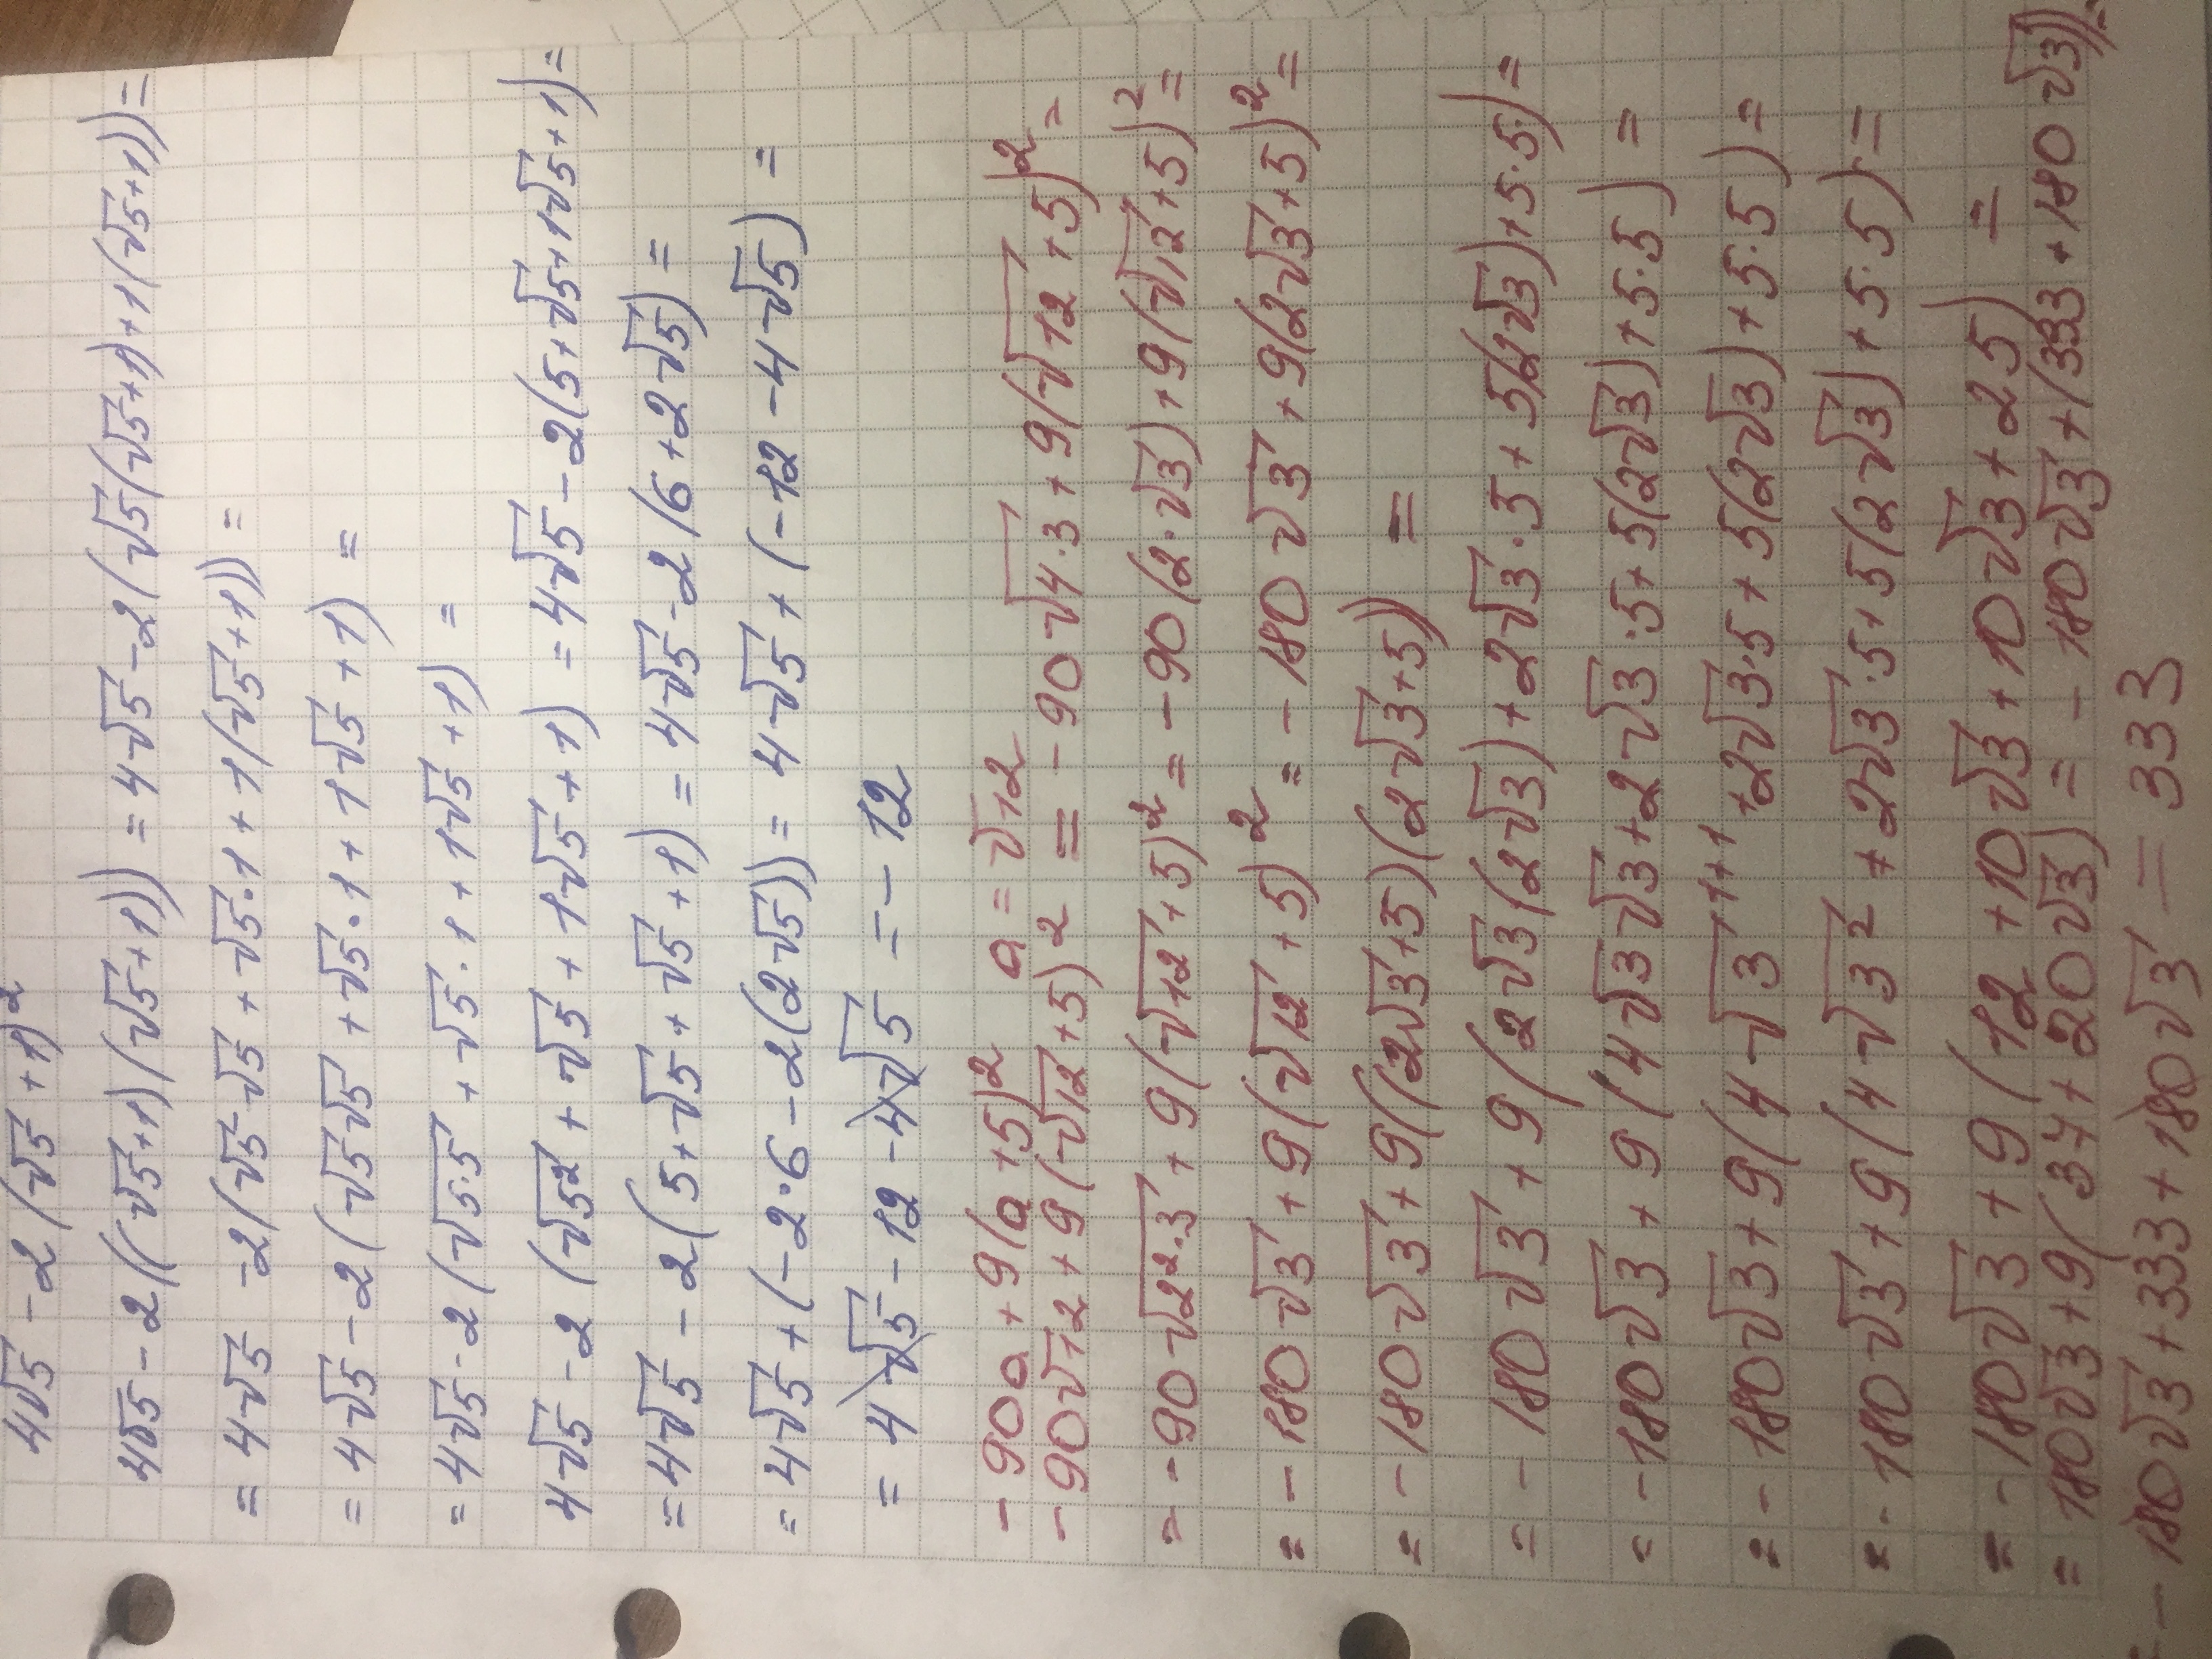 4√5 -2(√5+1)²
4√5-2((√5+1)(√5+1)) = 4√5-2(√5(√5+1)+1(√5+1))=
= 4√5 -2(√5·√5+√5·1+1(√5+1)) =
= 4√5-2(√5√5+√5·1+1√5+1) =
= 4√5-2(√5·5+√5·1+1√5+1) =
4√5-2(√5²+√5+1√5+1) = 4√5-2(5+√5+1√5+1)=
= 4√5-2(5+√5+√5+1) = 4√5-2(6+2√5) =
= 4√5+(-2·6-2(2√5)) = 4√5+(-12-4√5) =
= 4√5-12-4√5 = -12
-90a+9(a+5)² a=√12
-90√12+9(√12+5)² = -90√4·3+9(√12+5)² =
= -90√2²·3+9(√12+5)² = -90(2·√3)+9(√12+5)² =
= -180√3+9(√12+5)² = -180√3+9(2√3+5)² =
= -180√3+9((2√3+5)(2√3+5)) =
= -180√3+9(2√3(2√3)+2√3·5+5(2√3)+5·5) =
= -180√3+9(4√3√3+2√3·5+5(2√3)+5·5) =
= -180√3+9(4√3¹⁺¹+2√3·5+5(2√3)+5·5) =
= -180√3+9(4√3²+2√3·5+5(2√3)+5·5) =
= -180√3+9(12+10√3+10√3+25) =
= 180√3+9(37+20√3) = -180√3+(333+180√3))=
= -180√3+333+180√3 = 333